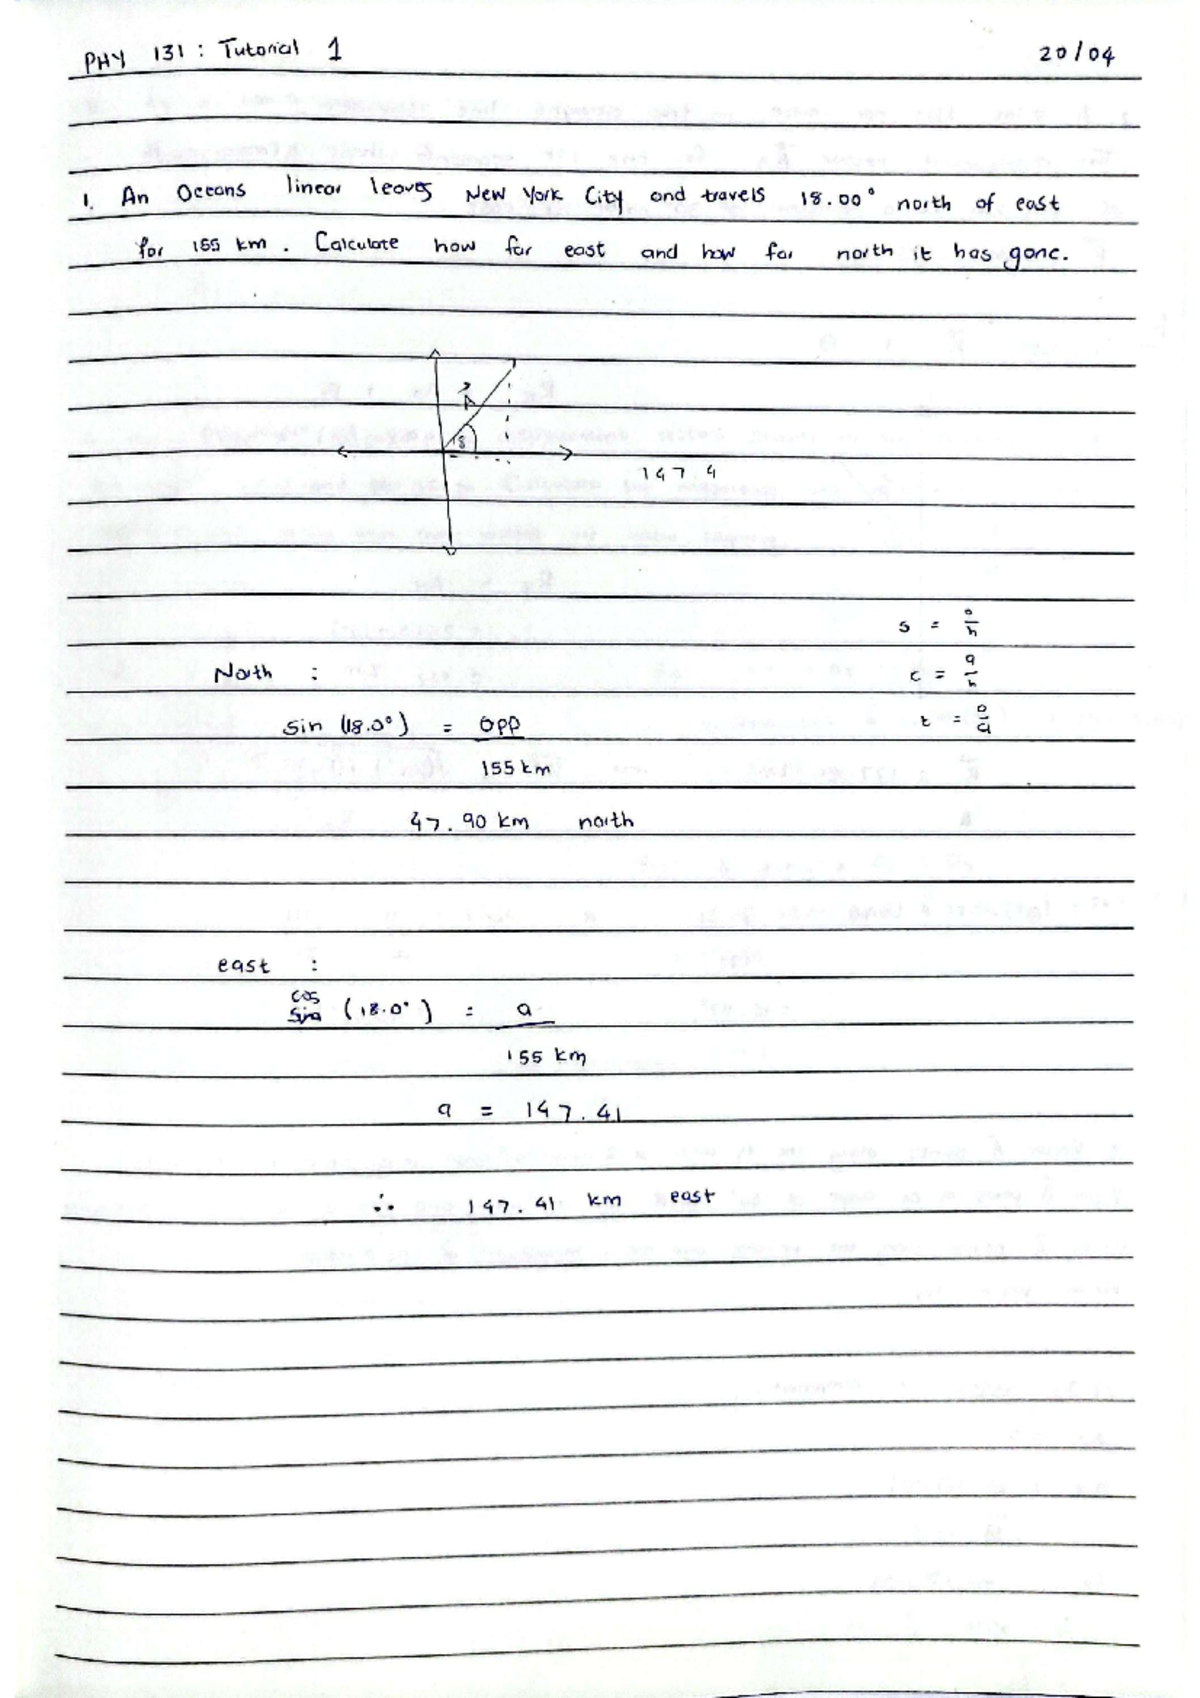 PHY 131 : Tutorial 1 20/04
1. An Oceans linear leaves New York City and travels 18.00° north of east
for 155 km. Calculate how far east and how far north it has gone.
A
18
147.4
s = o/h
c = a/h
t = o/a
North :
sin (18.0°) = opp
155 km
47.90 km north
east :
cos
sin (18.0°) = a
155 km
a = 147.41
∴ 147.41 km east